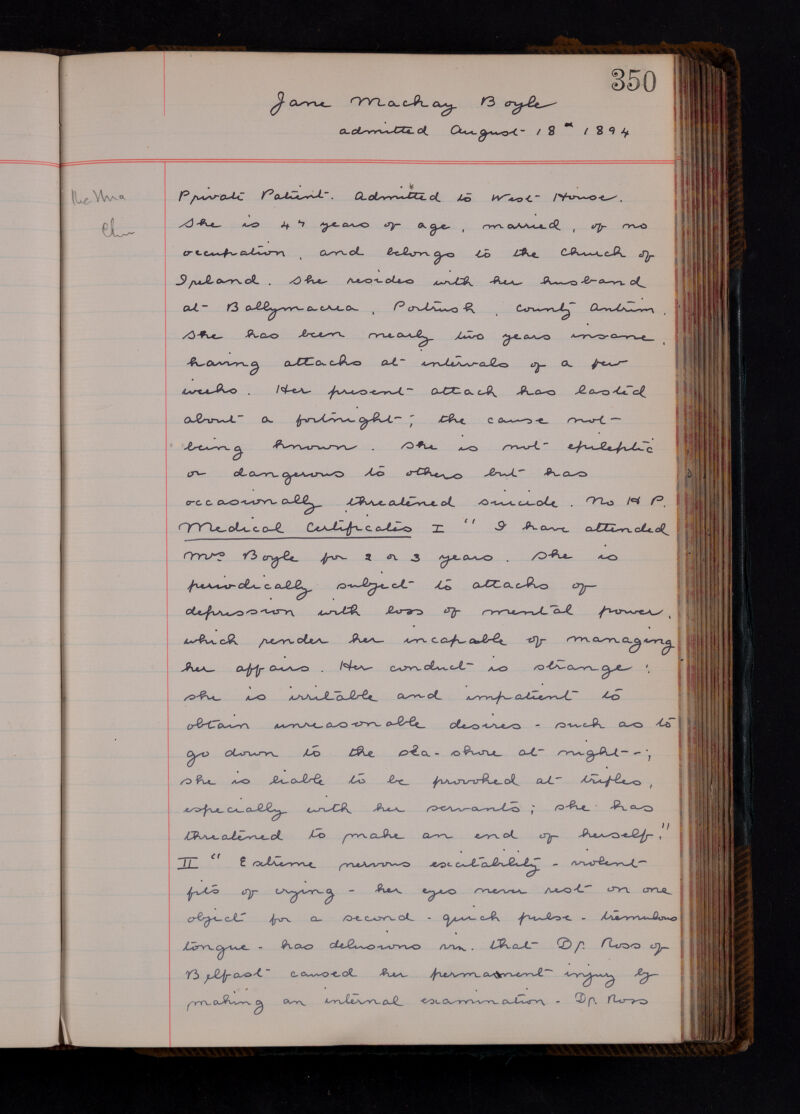 350
Jane Mackay Boyle
admitted August 18th 1894
Private Patient. Admitted to West House.
She is 47 years of age, married, of no
occupation, and belongs to the Church of
Ireland. She resides with her husband
at Ballymacrea, Portrush, County Antrim.
She has been nearly two years insane,
having attacks at intervals of a few
weeks. Her present attack has lasted
about a fortnight; the cause not
being known. She is not epileptic
or dangerous to others but has
occasionally threatened suicide. No H P.
Medical Certificates I "I have attended
Mrs Boyle for 2 or 3 years. She is
periodically subject to attacks of
depression with loss of mental power,
which render her incapable of managing
her affairs. Her conduct is strange;
she is irritable and impatient to
obtain unreasonable desires - such as to
go down to the sea-shore at night -;
she is liable to be provoked at trifles,
especially with her servants; she has
threatened to make an end of herself."
II "Extreme nervous excitability - violent
fits of crying - her eyes never rest on one
object for a second - quick pulse - tremulous
tongue - has delusions viz. that Dr. Ross of
Belfast caused her permanent injury by
making an internal examination - Dr. Ross